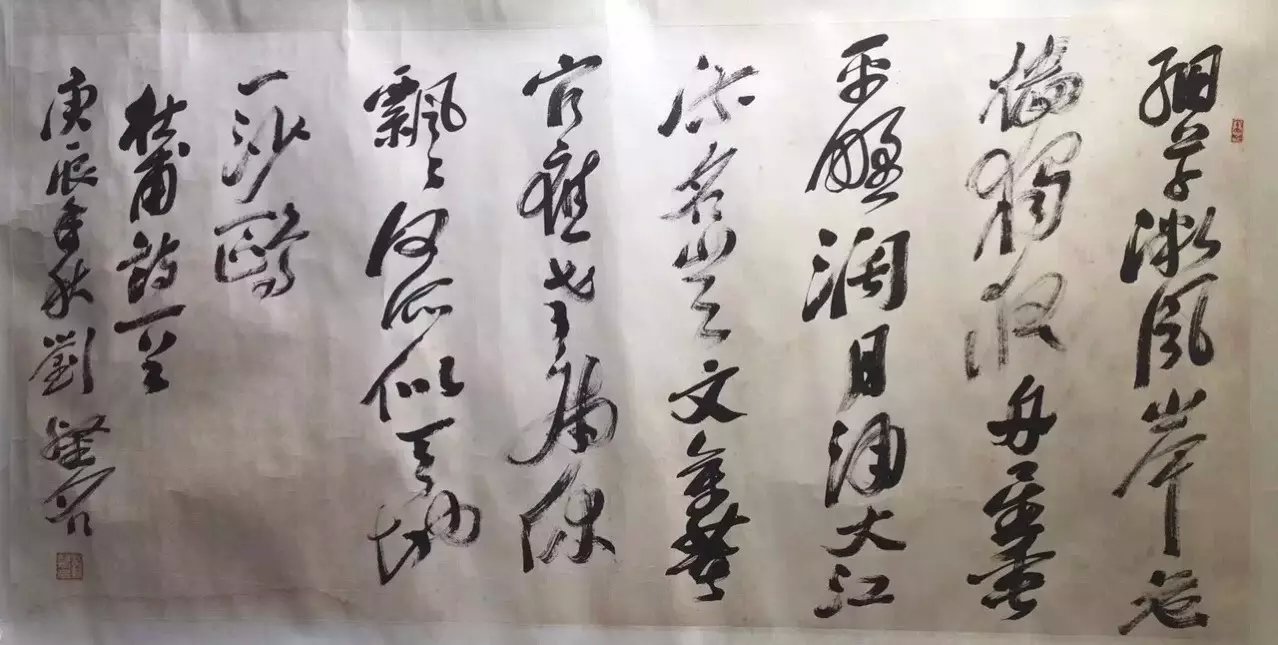 細草微風岸危
檣獨夜舟星垂
平野濶月涌大江
流名豈文章著
官應老病休
飄飄何所似天地
一沙鷗
杜甫詩一首
庚辰年秋劉